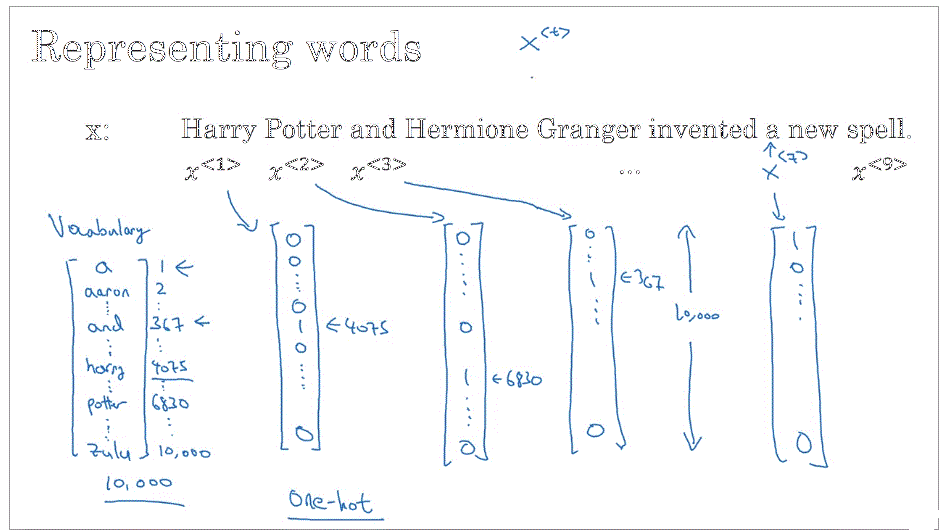 Representing words
x<t>
x: Harry Potter and Hermione Granger invented a new spell.
x<1> x<2> x<3> ... x<7> x<9>
Vocabulary
a 1 ←
aaron 2
⋮ ⋮
and 367 ←
⋮ ⋮
harry 4075
⋮ ⋮
potter 6830
⋮ ⋮
zulu 10,000
10,000
0
0
⋮
0
1 ← 4075
0
⋮
0
0
⋮
0
1 ← 6830
⋮
0
0
⋮
1 ← 367
⋮
0
10,000
1
0
⋮
0
One-hot